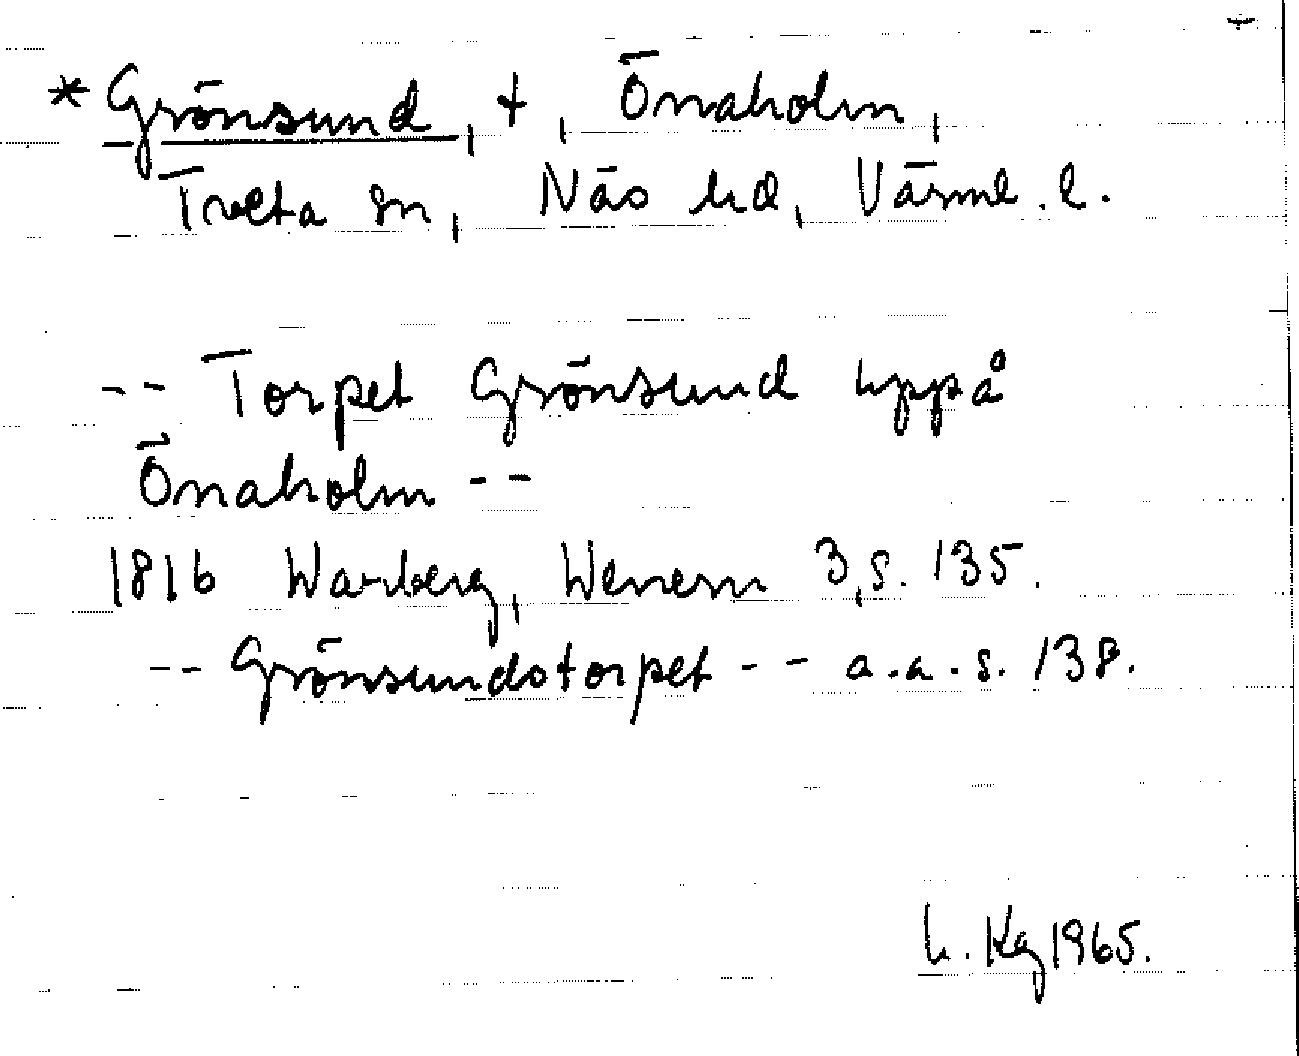 *Grönsund, t, Önaholm,
Tveta sn, Näs hd, Värml. l.
-- Torpet Grönsund uppå
Önaholm --
1816 Warberg, Wenern 3, s. 135.
-- Grönsundstorpet -- a.a. s. 138.
Kg 1965.